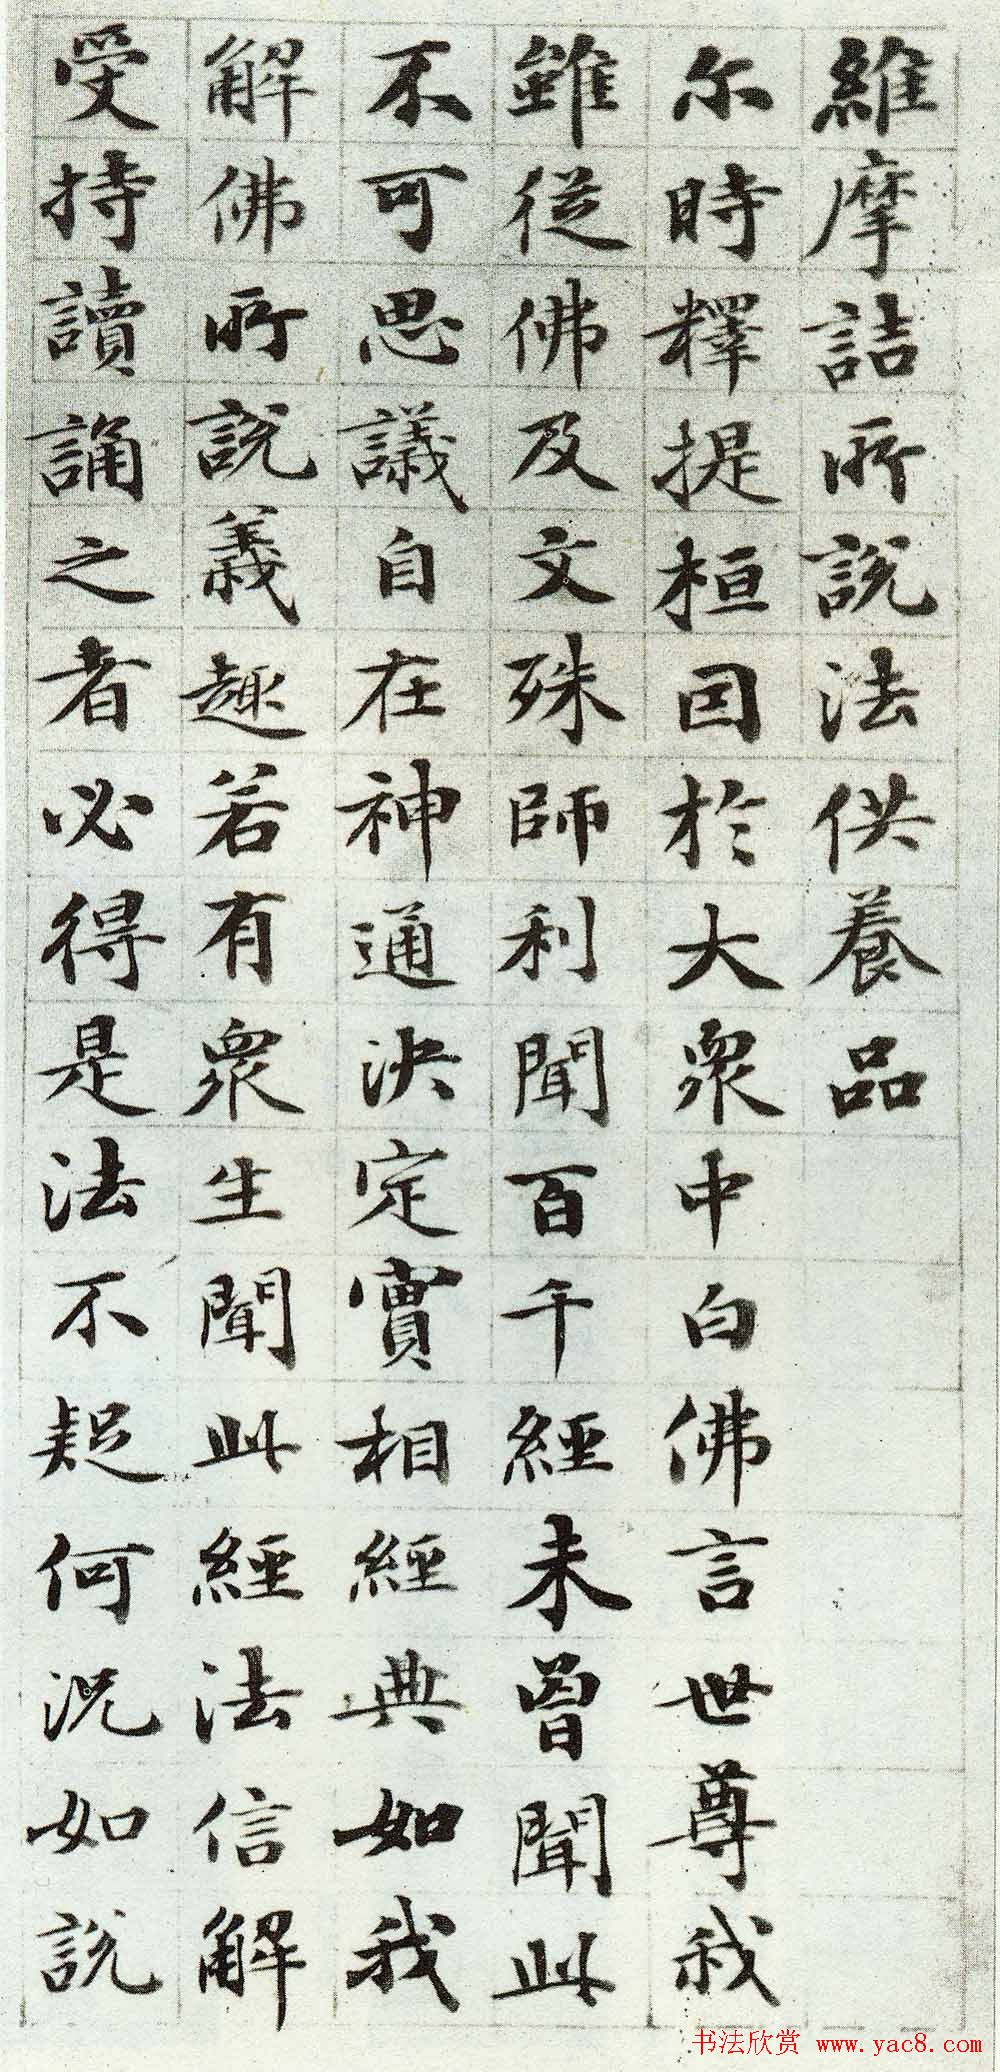 維摩詰所說法供養品
尔時釋提桓因於大眾中白佛言世尊我
雖從佛及文殊師利聞百千經未曾聞此
不可思議自在神通決定實相經典如我
解佛所說義趣若有眾生聞此經法信解
受持讀誦之者必得是法不疑何況如說
书法欣赏 www.yac8.com